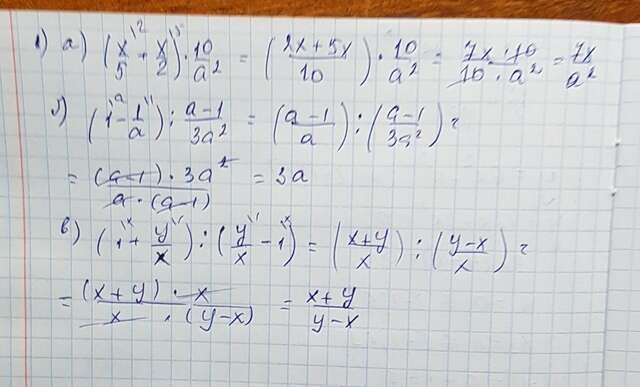 1) а) (x/5^\2 + x/2^\5) · 10/a² = ((2x+5x)/10) · 10/a² = (7x · 10)/(10 · a²) = 7x/a²
б) (1^\a − 1/a^\1) : (a−1)/3a² = ((a−1)/a) : ((a−1)/3a²) =
= ((a−1) · 3a²)/(a · (a−1)) = 3a
в) (1^\x + y/x^\1) : (y/x^\1 − 1^\x) = ((x+y)/x) : ((y−x)/x) =
= ((x+y) · x)/(x · (y−x)) = (x+y)/(y−x)